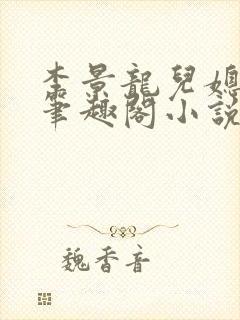 李景龍兒媳
筆趣閣小說
魏香音